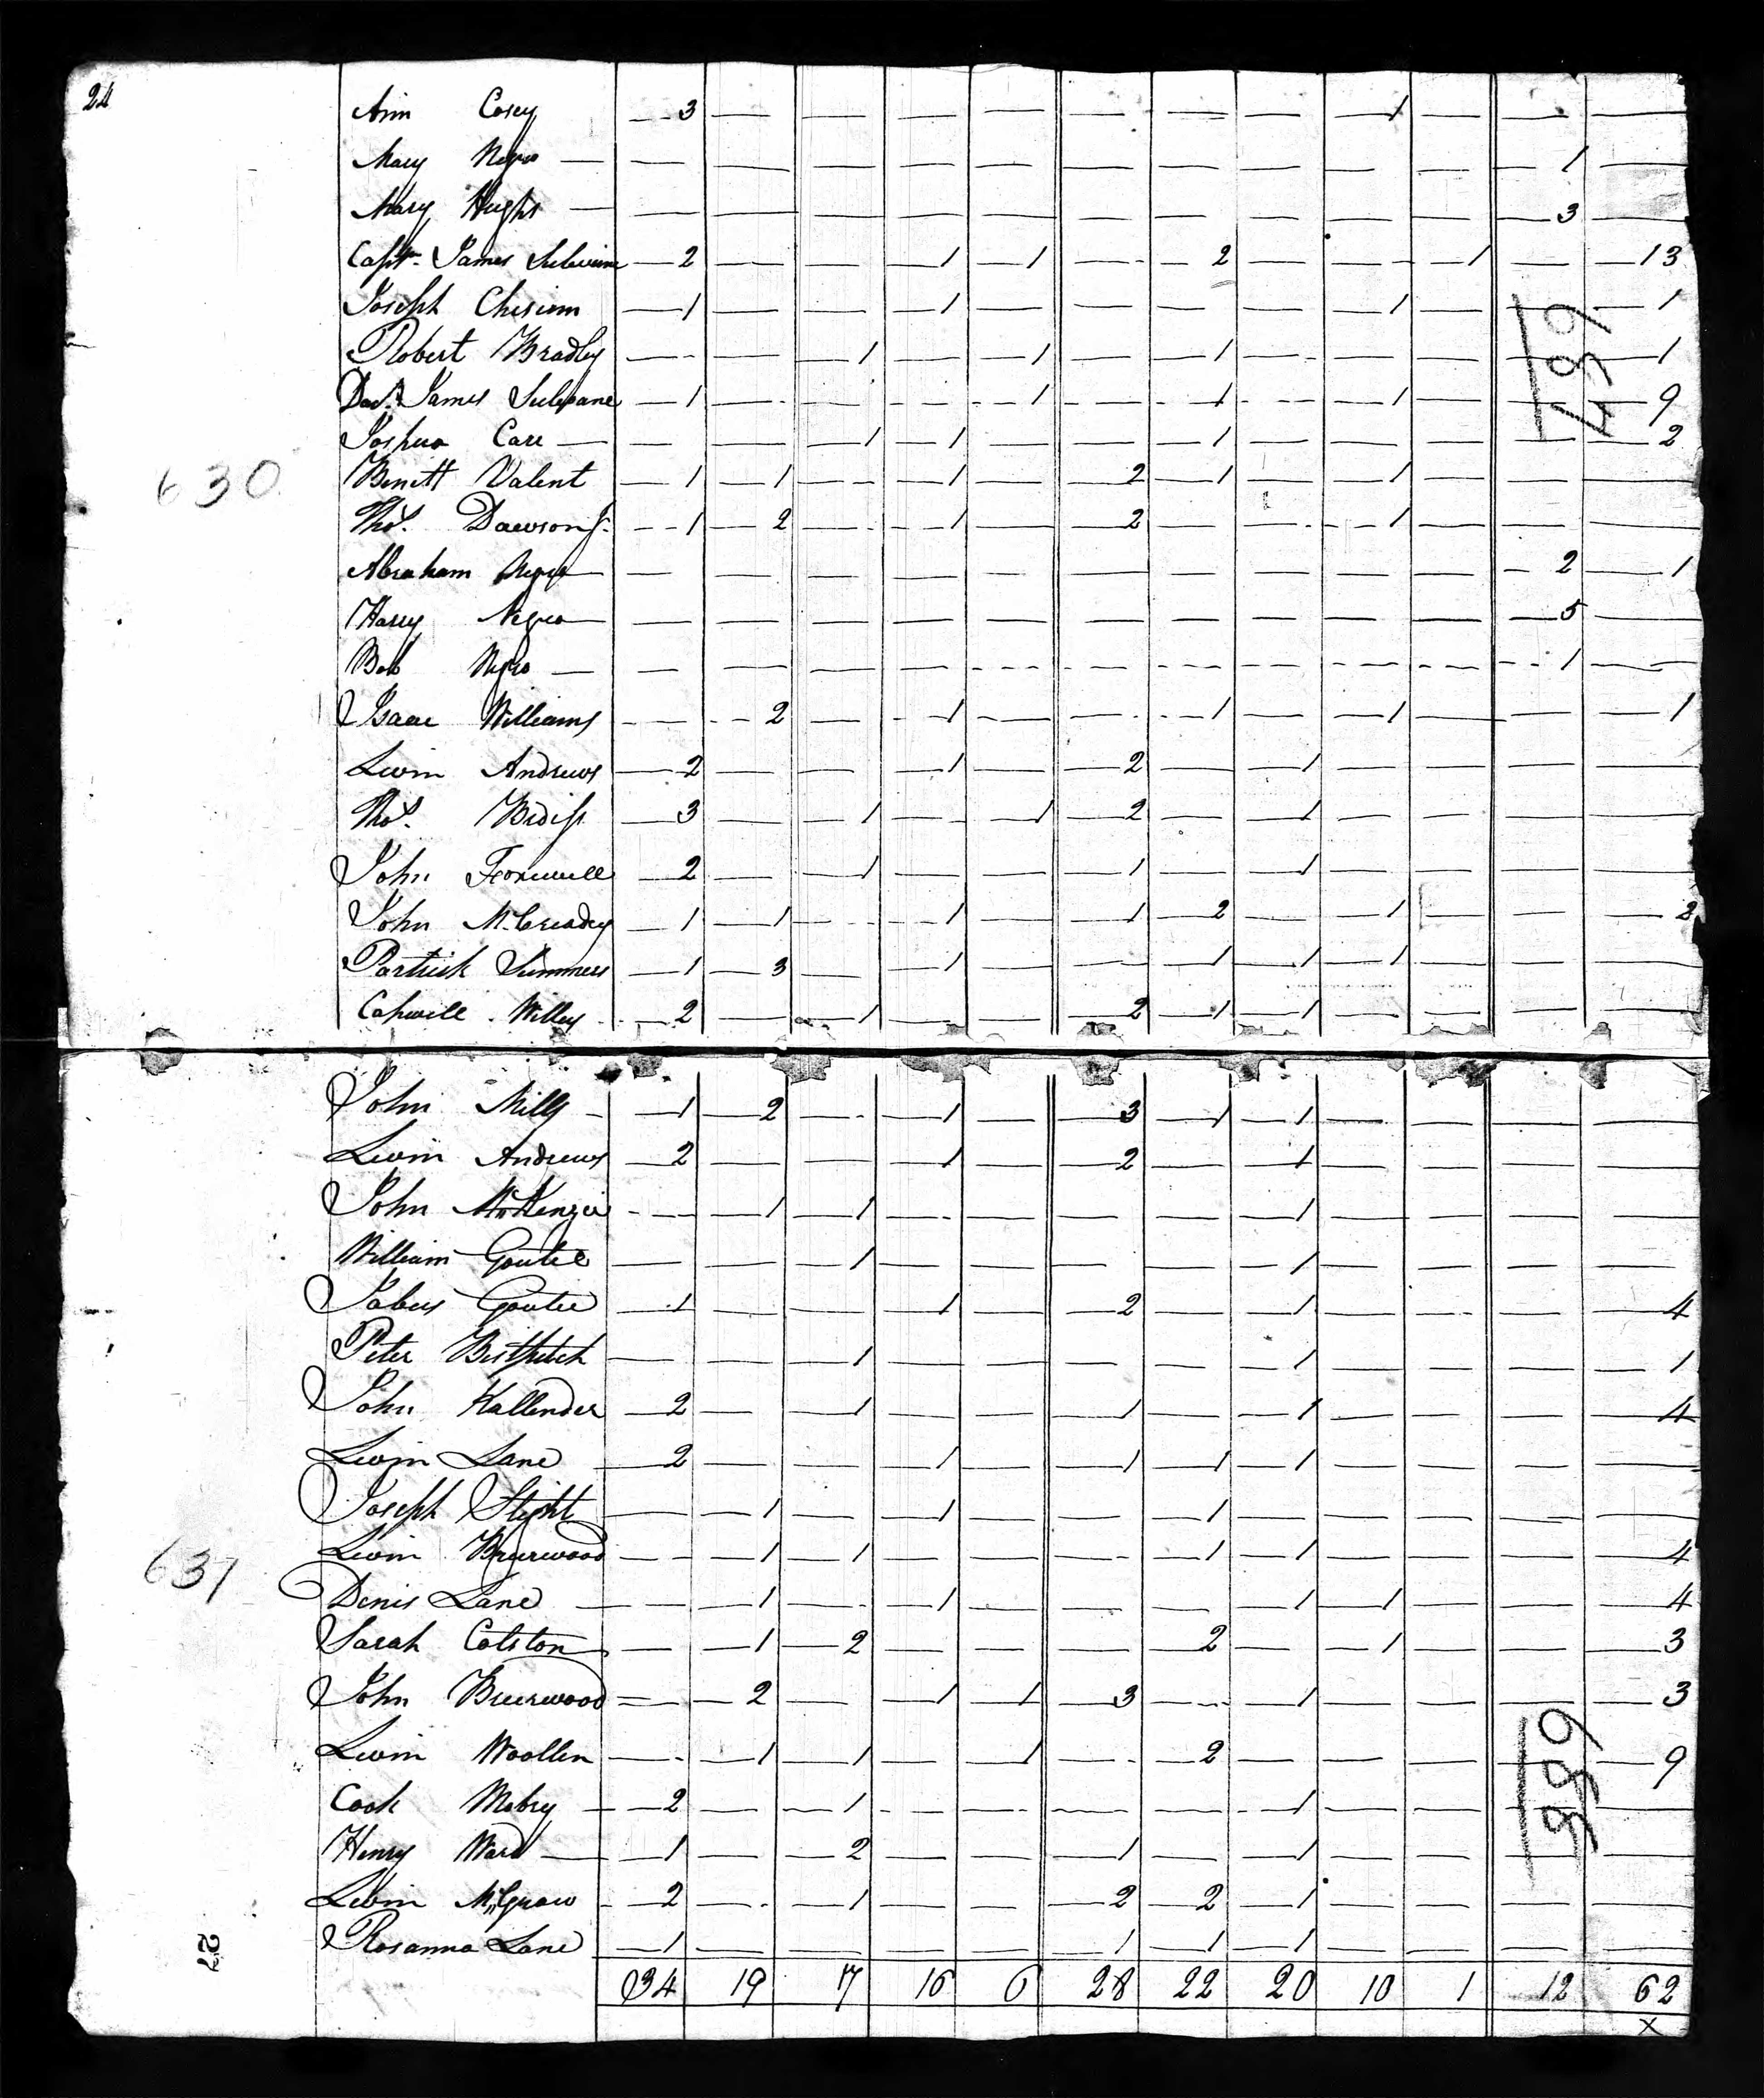 24
Ann Cosey — 3 — — — — — — — 1 — — —
Mary Negro — — — — — — — — — — — 1 —
Mary Hughs — — — — — — — — — — — 3 —
Capt. James — 2 — — 1 1 — 2 — — 1 — 13
Joseph Chisium — 1 — — 1 — — — — 1 — — 1
Robert Bradley — — — 1 — 1 — 1 — — — — 1
James Sulivane — 1 — — — 1 — 1 — 1 — — 9
Joshua Carr — — — 1 1 — — 1 — — — — 2
630
Benett Valent — 1 1 — 1 — 2 1 — 1 — — —
Thos. Dawson Jr. — 1 2 — 1 — 2 — — 1 — — —
Abraham Negro — — — — — — — — — — — 2 1
Harry Negro — — — — — — — — — — — 5 —
Bob Negro — — — — — — — — — — — 1 —
Isaac Williams — — 2 — 1 — — 1 — 1 — — 1
Levin Andrews — 2 — — 1 — 2 — 1 — — — —
Thos. — 3 — 1 — 1 2 — 1 — — — —
John — 2 — 1 — — 1 — 1 — — — —
John McCready — 1 1 — 1 — 1 2 — 1 — — 2
Partrick Summers — 1 3 — 1 — — 1 1 1 — — —
Capwill Willey — 2 — 1 — — 2 1 1 — — — —
John Mills — 1 2 — 1 — 3 1 1 — — — —
Levin Andrews — 2 — — 1 — 2 — 1 — — — —
John McKenzie — — 1 1 — — — — 1 — — — —
William Goutee — — — 1 — — — — 1 — — — —
Jabus Goutee — 1 — — 1 — 2 — 1 — — — 4
Peter Bestpitch — — — 1 — — — — 1 — — — 1
John Hallender — 2 — 1 — — 1 — 1 — — — 4
Levin Lane — 2 — — 1 — 1 1 1 — — — —
Joseph Slight — — 1 — 1 — — 1 — — — — —
Levin Breerwood — — 1 1 — — — 1 1 — — — 4
631
Denis Lane — — 1 — 1 — — — 1 1 — — 4
Sarah Colston — — 1 2 — — — 2 — 1 — — 3
John Breerwood — — 2 — 1 1 3 — 1 — — — 3
Levin Woollen — — 1 1 — 1 — 2 — — — — 9
Cook Mobry — 2 — 1 — — — — 1 — — — —
Henry Ward — 1 — 2 — — 1 — 1 — — — —
Levin McGraw — 2 — 1 — — 2 2 1 — — — —
Rosanna Lane — 1 — — — — 1 1 1 — — — —
34 19 17 16 6 28 22 20 10 1 12 62
x
27